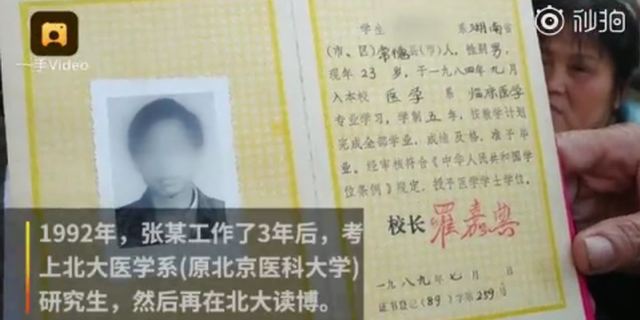 一手Video
秒拍
学生 系湖南省
(市、区)常德县(市)人，性别男，
现年23岁，于一九八四年九月
入本校 医学 系 临床医学
专业学习，学制五年，按教学计划
完成全部学业，成绩及格，准予毕
业。经审核符合《中华人民共和国学
位条例》规定，授予医学学士学位。
校长
一九八九年七月 日
证书登记(89)字第259号
1992年，张某工作了3年后，考
上北大医学系(原北京医科大学)
研究生，然后再在北大读博。